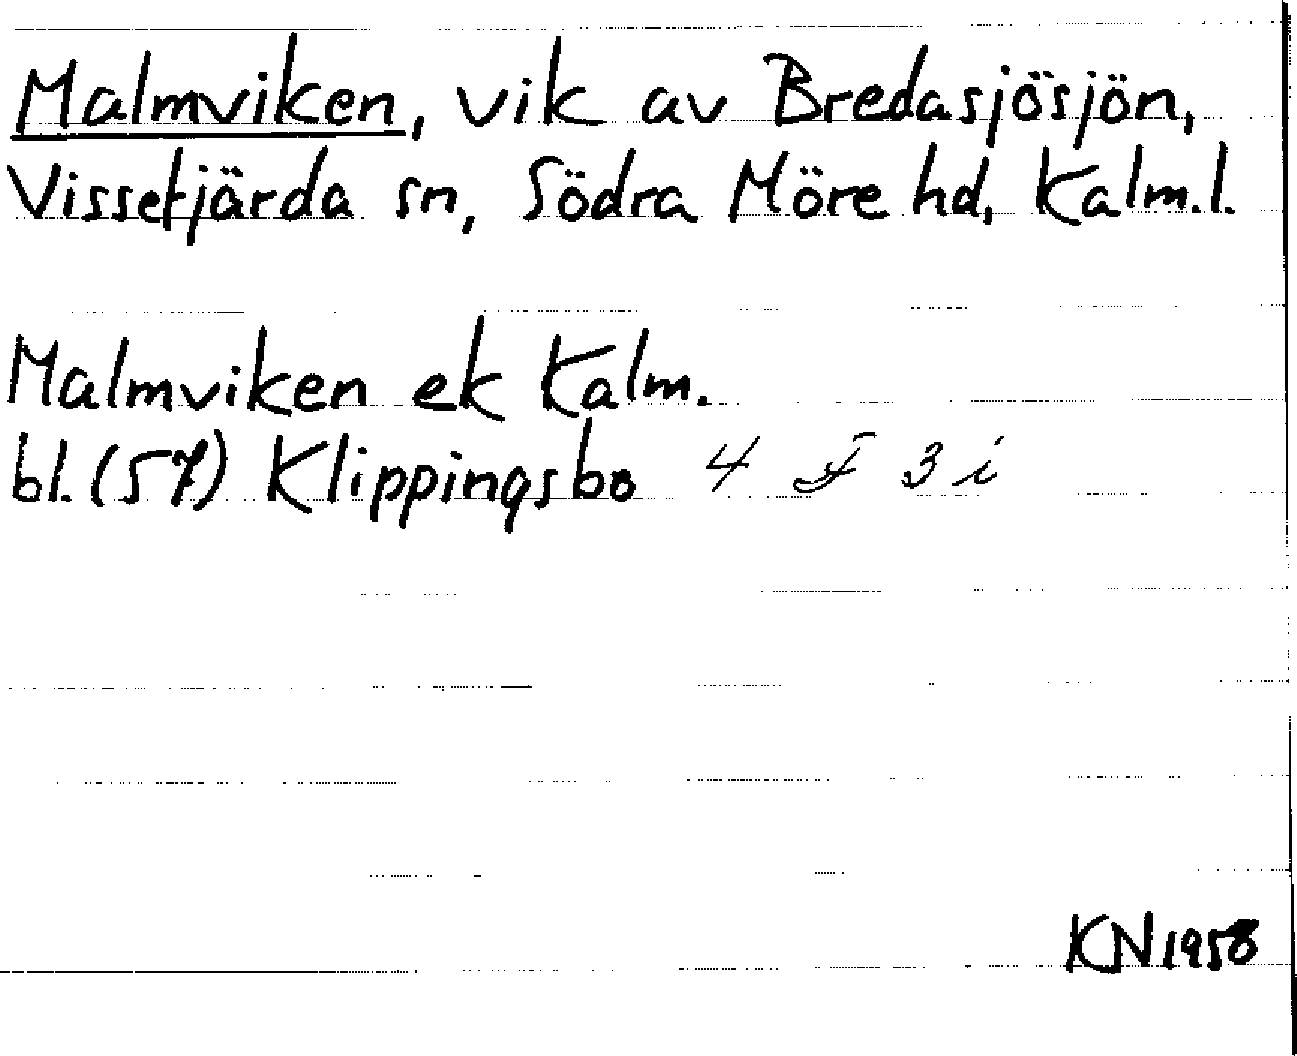 Malmviken, vik av Bredasjösjön,
Vissefjärda sn, Södra Möre hd, Kalm.l.
Malmviken ek Kalm.
bl. (57) Klippingsbo 4 F 3 i
KN 1958